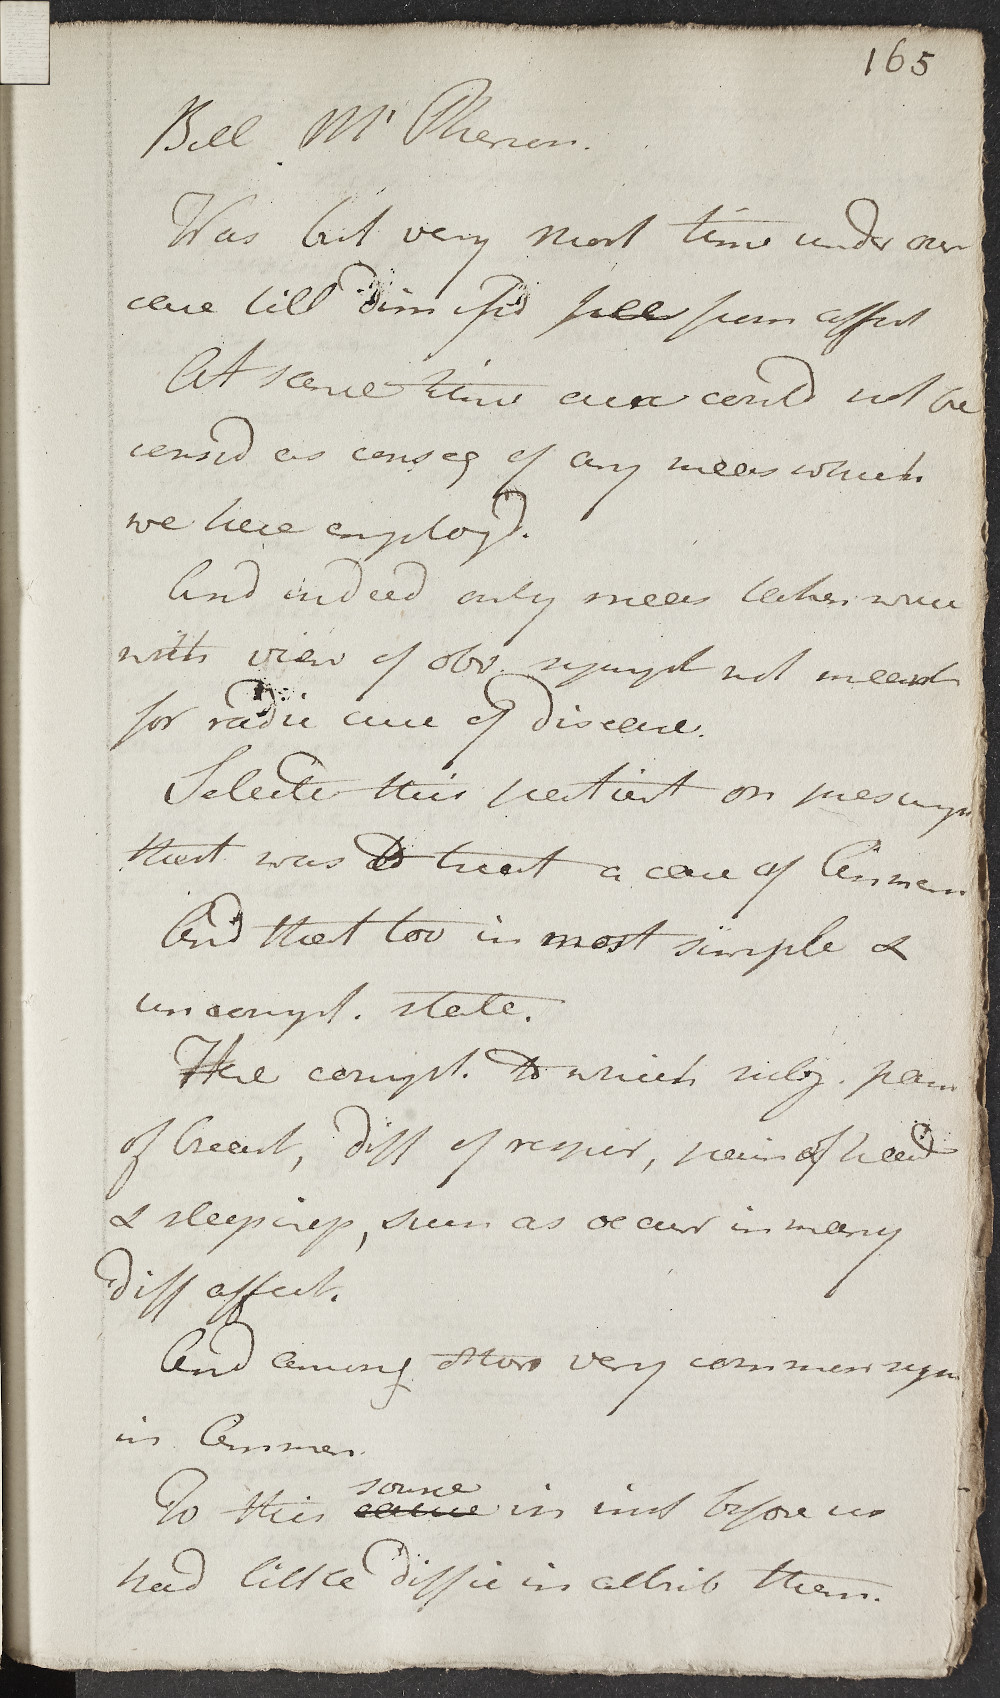 165
Bell McPherson.
Was but very short time under our
care till dismissd free from affect
At same time cure could not be
consid as conseq of any meas which
we here employd.
And indeed only meas taken were
with view of obv sympt not meant
for radic cure of disease.
Selected this patient on presumpt
that was to treat a case of Amen
And that too in most simple &
uncompt. state.
The compt. to which subj. pain
of breast, diff of respir, pain of head
& sleeping, such as occur in many
diff affect.
And among others very common sym
in Amen
To this source in inst before us
had little diffic in attrib them.